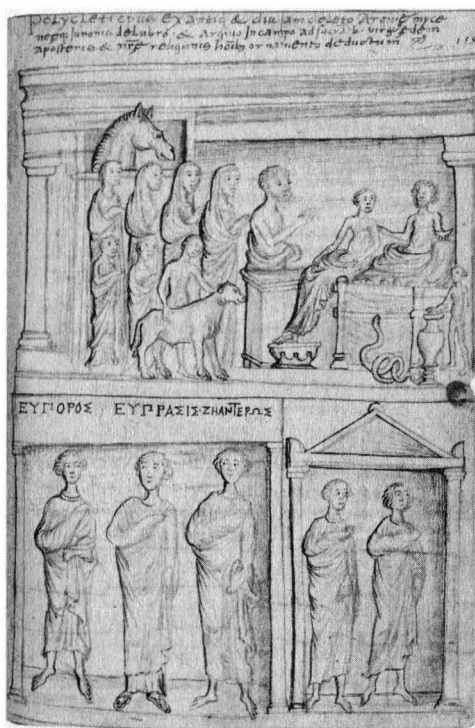 Polycleti opus Ex antiq & diu iam deleto Argivę
Junonis delubro, & Argivo In campo ad sacra b. virg ędem
a posteris & nrę religionis ornamento deductum
ΕΥΠΟΡΟΣ . ΕΥΠΡΑΣΙΣ·ΖΗΑΝΤΕΡΩΣ